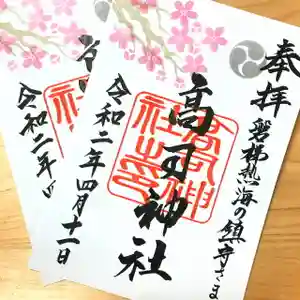 奉拝
磐梯熱海の鎮守さま
高司神社
高司神社之印
令和二年四月十一日
令和二年